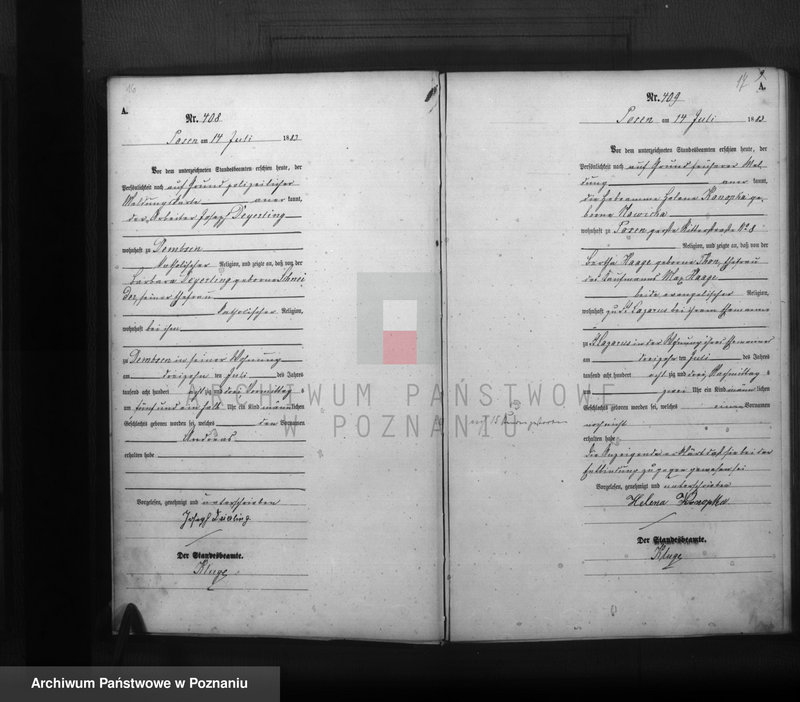 16
A.
Nr. 408
Posen am 14 Juli 1883
Vor dem unterzeichneten Standesbeamten erschien heute, der
Persönlichkeit nach auf Grund polizeilicher
Meldungskarte aner kannt,
der Arbeiter Joseph Deyerling
wohnhaft zu Dembsen
katholischer Religion, und zeigte an, daß von der
Barbara Deyerling geborne Schnei
der, seiner Ehefrau
katholischer Religion,
wohnhaft bei ihm
zu Dembsen in seiner Wohnung
am dreizehn ten Juli des Jahres
tausend acht hundert acht zig und drei Vormittag s
um fünf und ein halb Uhr ein Kind männlichen
Geschlechts geboren worden sei, welches den Vornamen
Andreas
erhalten habe
Vorgelesen, genehmigt und unterschrieben
Joseph
Der Standesbeamte.
Kluge
17
A.
Nr. 409
Posen am 14 Juli 1883
Vor dem unterzeichneten Standesbeamten erschien heute, der
Persönlichkeit nach auf Grund früherer Mel
dung aner kannt,
die Hebeamme Helena Konopka ge
borne Nowicka
wohnhaft zu Posen große Ritterstraße No 8
Religion, und zeigte an, daß von der
Bertha Haage geborne Thon, Ehefrau
des Kaufmanns Max Haage
beide evangelischer Religion,
wohnhaft zu St. Lazarus bei ihrem Ehemanne
zu St. Lazarus in der Wohnung ihres Ehemannes
am dreizehn ten Juli des Jahres
tausend acht hundert acht zig und drei Nachmittag s
um zwei Uhr ein Kind männlichen
Geschlechts geboren worden sei, welches einen Vornamen
noch nicht
erhalten habe
die Anzeigende erklärt daß sie bei der
Entbindung zugegen gewesen sei
Vorgelesen, genehmigt und unterschrieben
Helena Konopka
Der Standesbeamte.
Kluge
ARCHIWUM PAŃSTWOWE
W POZNANIU
Archiwum Państwowe w Poznaniu